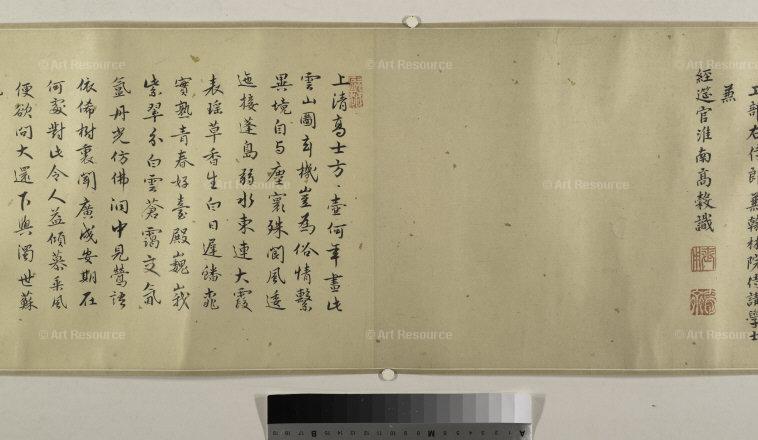 工部右侍郎兼翰林院侍講學士
兼
經筵官淮南高穀識
上清高士方壺何年畫此
雲山圖玄機豈為俗情繫
異境自與塵寰殊閬風遙
迤接蓬島弱水東連大霞
表瑤草香生白日遲蟠桃
實熟青春好臺殿巍峩
紫翠分白雲蒼靄交氤
氳丹光仿佛洞中見鶯語
依俙樹裏聞廣成安期在
何處對此令人益傾慕乘風
便欲問大還下與濁世蘇
© Art Resource
© Art Resource
© Art Resource
© Art Resource
© Art Resource
© Art Resource
© Art Resource
© Art Resource
© Art Resource